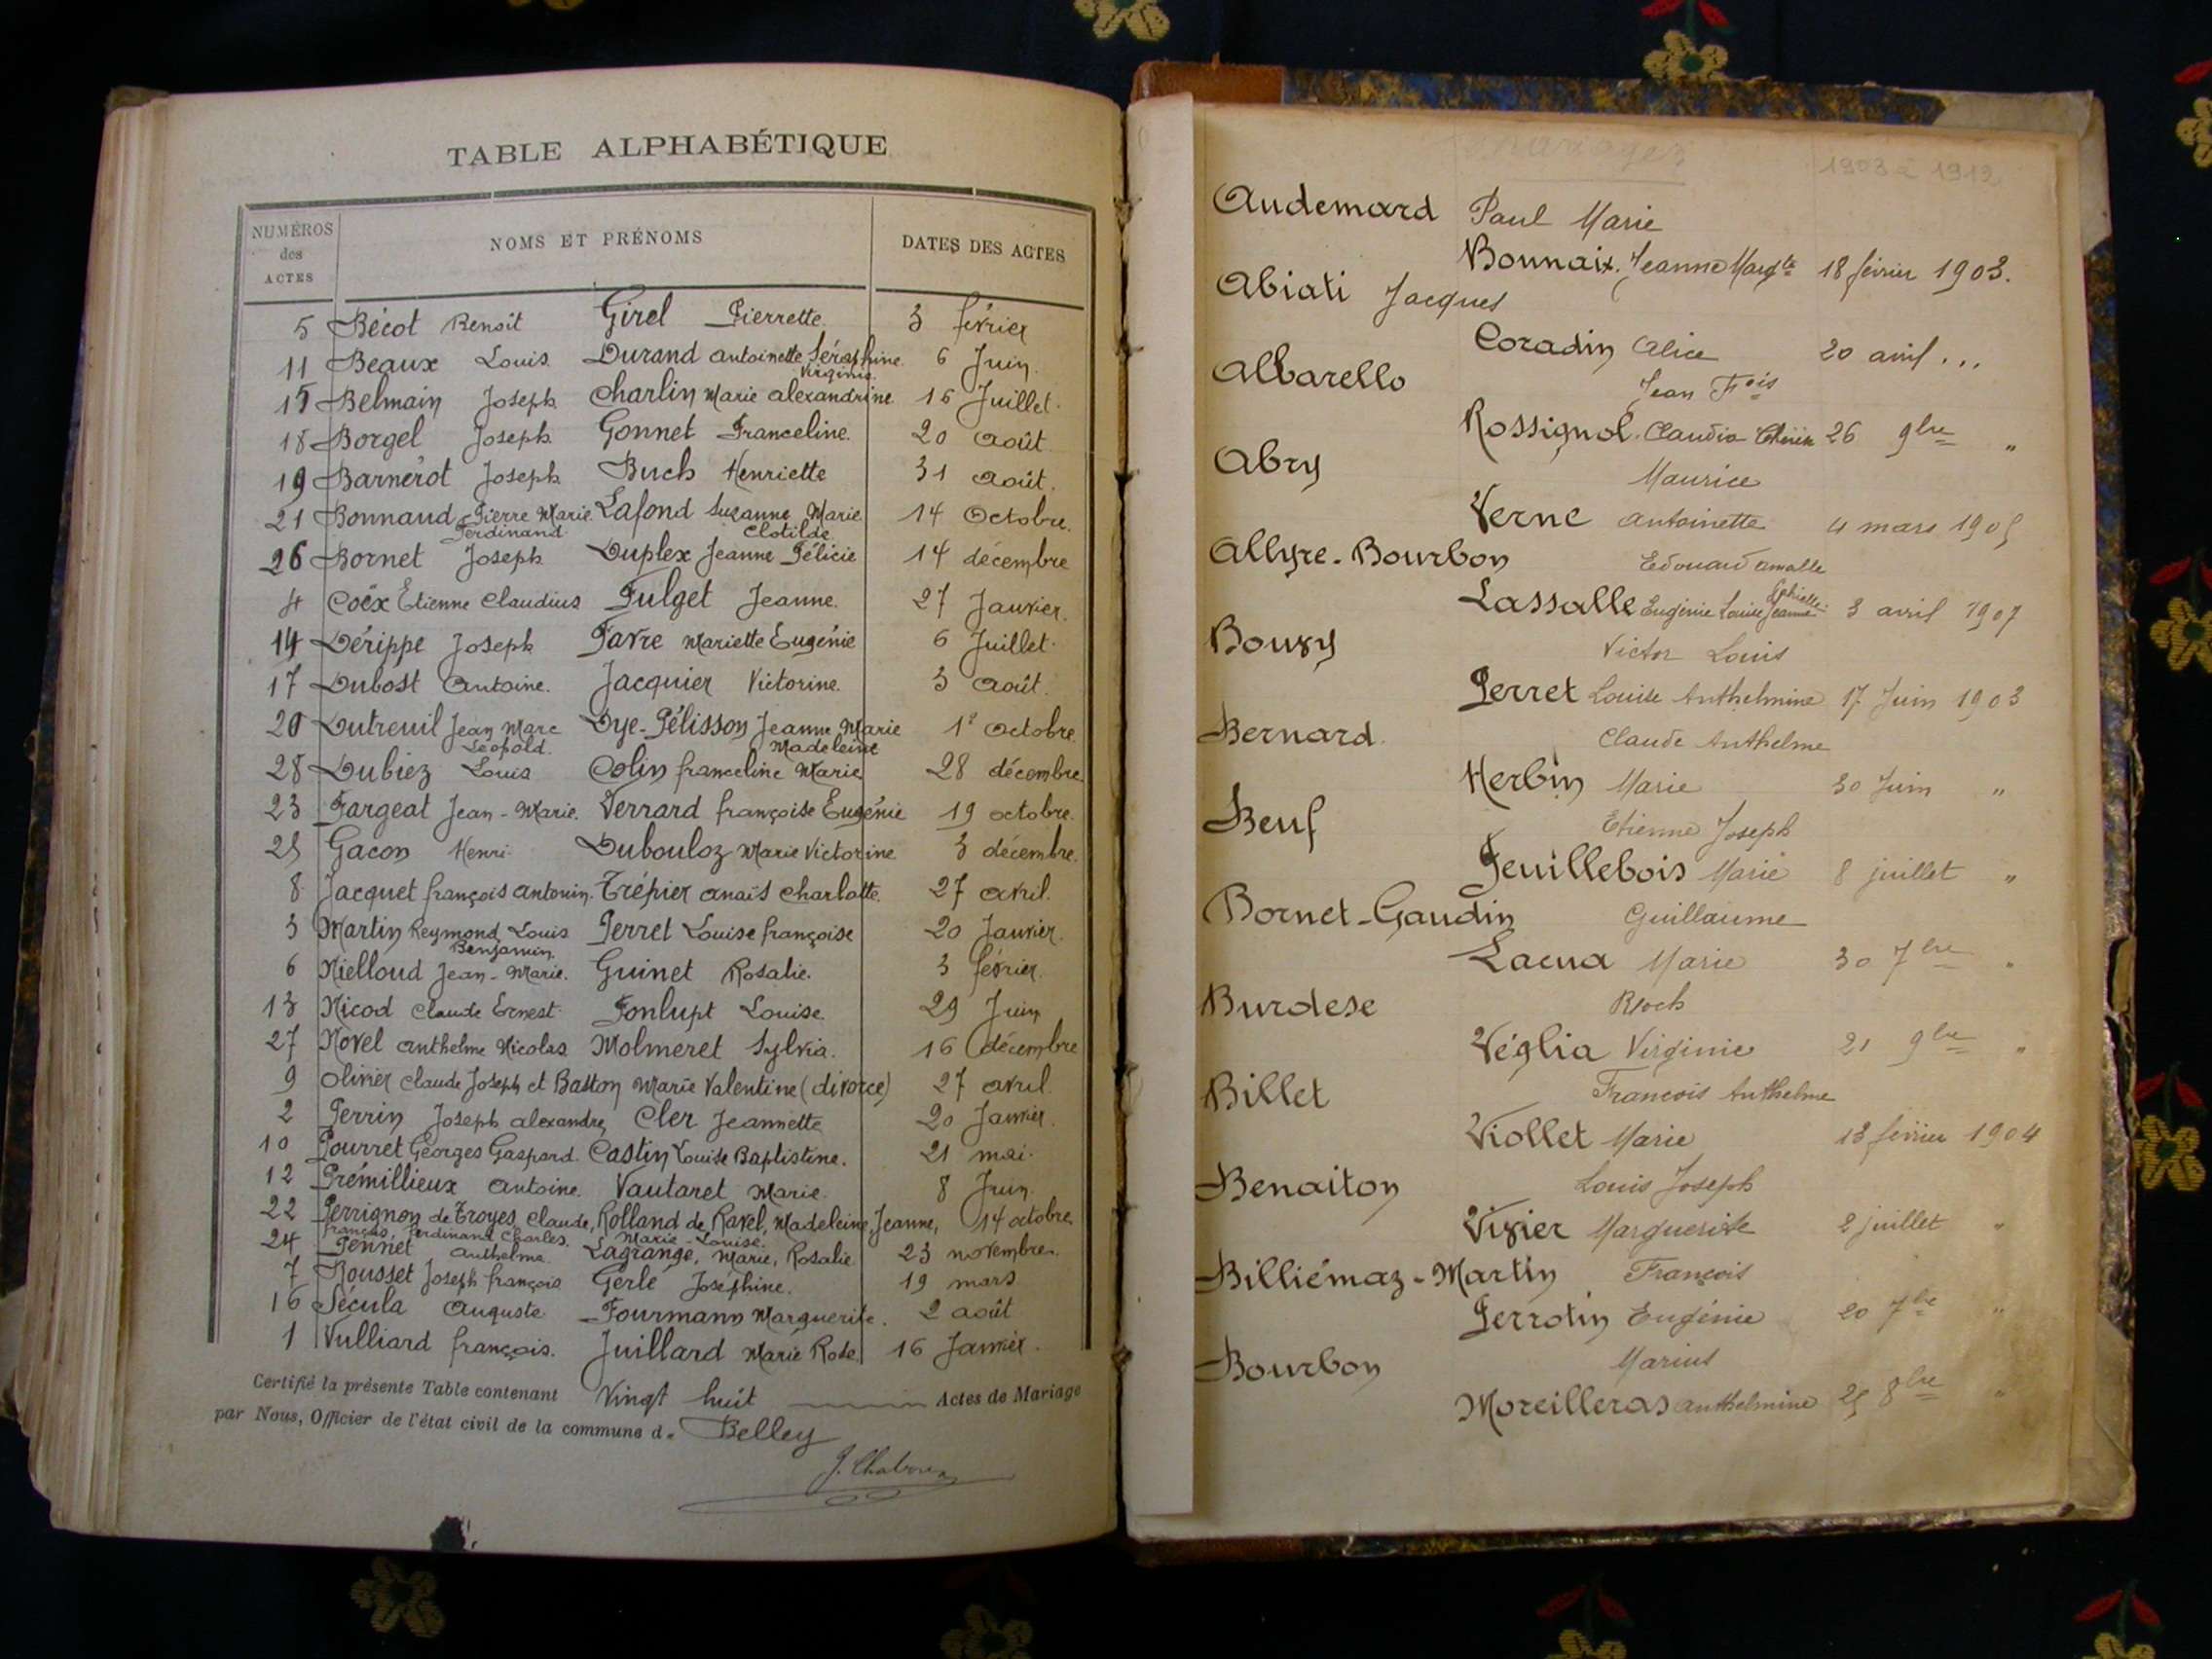 TABLE ALPHABÉTIQUE
NUMÉROS des ACTES NOMS ET PRÉNOMS DATES DES ACTES
5 Bécot Benoît Girel Pierrette. 3 février
11 Beaux Louis Durand Antoinette Séraphine Virginie. 6 Juin.
15 Belmain Joseph Charlin Marie Alexandrine 16 Juillet.
18 Borgel Joseph Gonnet Franceline. 20 Août.
19 Barnérot Joseph Buch Henriette 31 Août.
21 Bonnaud Pierre Marie Ferdinand Lafond Suzanne Marie Clotilde 14 Octobre.
26 Bornet Joseph Duplex Jeanne Félicie 14 décembre
4 Coëx Etienne Claudius Fulget Jeanne. 27 Janvier.
14 Dérippe Joseph Favre Mariette Eugénie 6 Juillet.
17 Dubost Antoine. Jacquier Victorine. 3 Août.
20 Dutreuil Jean Marc Léopold. Dye-Pélisson Jeanne Marie Madeleine 1er Octobre.
28 Dubiez Louis Colin franceline Marie 28 décembre
23 Fargeat Jean-Marie. Verrard françoise Eugénie 19 octobre.
25 Gacon Henri Dubouloz Marie Victorine 3 décembre.
8 Jacquet françois antonin. Trépier anaïs charlotte. 27 avril.
3 Martin Reymond Louis Benjamin Perret Louise françoise 20 Janvier.
6 Nielloud Jean-Marie. Guinet Rosalie. 3 février.
13 Nicod Claude Ernest Fonlupt Louise. 29 Juin
27 Novel anthelme Nicolas Molmeret Sylvia. 16 décembre
9 Olivier Claude Joseph et Batton Marie Valentine (divorce) 27 avril.
2 Perrin Joseph alexandre Cler Jeannette 20 Janvier.
10 Pourret Georges Gaspard. Castin Louise Baptistine. 21 mai.
12 Prémillieux Antoine. Vautaret Marie. 8 Juin.
22 Perrignon de Troyes, Claude, françois, Ferdinand Charles. Rolland de Ravel, Madeleine, Jeanne, Marie-Louise. 14 octobre
24 Pennet Anthelme Lagrange, Marie, Rosalie 23 novembre.
7 Rousset Joseph françois Gerle Joséphine. 19 mars
16 Sécula Auguste Fourmann Marguerite. 2 août
1 Vulliard françois. Juillard Marie Rose 16 Janvier.
Certifié la présente Table contenant Vingt huit Actes de Mariage
par Nous, Officier de l'état civil de la commune de Belley
Mariages 1903 à 1912
Audemard Paul Marie
Bonnaix. Jeanne Margte 18 février 1903.
Abiati Jacques
Coradin Alice 20 avril ...
Albarello Jean Fois
Rossignol. Claudia 26 9bre "
Abry Maurice
Verne Antoinette 4 mars 1905
Allyre-Bourbon Edouard
Lassalle Eugénie Louise Jeanne 3 avril 1907
Bouvy Victor Louis
Perret Louise Anthelmine 17 Juin 1903
Bernard. Claude Anthelme
Herbin Marie 30 Juin "
Beuf Etienne Joseph
Feuillebois Marie 8 juillet "
Bornet-Gaudin Guillaume
Lacua Marie 30 7bre "
Burdese Roch
Véglia Virginie 21 9bre "
Billet François Anthelme
Viollet Marie 13 février 1904
Benaiton Louis Joseph
Vivier Marguerite 2 juillet "
Billiémaz-Martin François
Perrotin Eugénie 20 7bre "
Bourbon Marius
Moreilleras anthelmine 25 8bre "